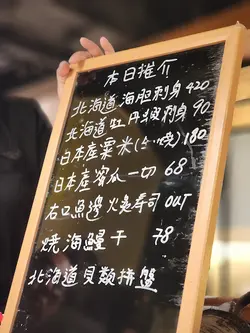 本日推介
北海道海胆刺身420
北海道牡丹蝦刺身90
日本産粟米(小燒)180
日本產蜜瓜一切 68
右口魚邊火炙寿司 OUT
燒海鰻干 78
北海道貝類拼盤